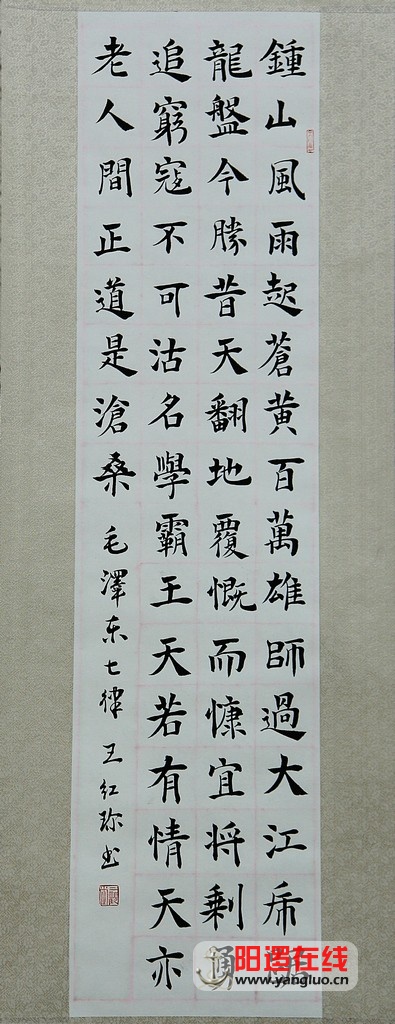 鍾山風雨起蒼黃百萬雄師過大江虎
龍盤今勝昔天翻地覆慨而慷宜将剩
追窮寇不可沽名學霸王天若有情天亦
老人間正道是滄桑 毛澤东七律 王红珍书
阳逻在线
www.yangluo.cn